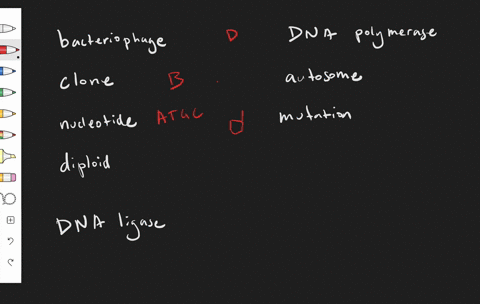 bacteriophage D DNA polymerase
clone B autosome
nucleotide ATGC d mutation
diploid
DNA ligase